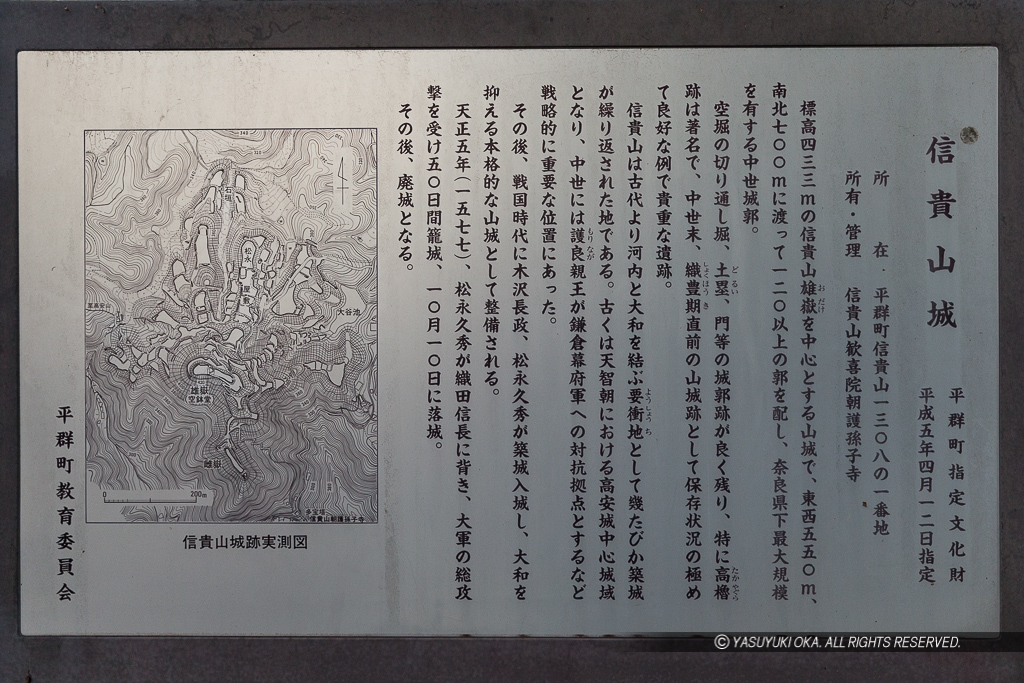 信貴山城
平群町指定文化財
平成五年四月一二日指定
所在・平群町信貴山一三〇八の一番地
所有・管理 信貴山歓喜院朝護孫子寺
標高四三三mの信貴山雄嶽を中心とする山城で、東西五五〇m、
おだけ
南北七〇〇mに渡って一二〇以上の郭を配し、奈良県下最大規模
を有する中世城郭。
空堀の切り通し堀、土塁、門等の城郭跡が良く残り、特に高櫓
どるい
たかやぐら
跡は著名で、中世末、織豊期直前の山城跡として保存状況の極め
しょくほうき
て良好な例で貴重な遺跡。
信貴山は古代より河内と大和を結ぶ要衝地として幾たびか築城
ようしょうち
が繰り返された地である。古くは天智朝における高安城中心城域
となり、中世には護良親王が鎌倉幕府軍への対抗拠点とするなど
もりなが
戦略的に重要な位置にあった。
その後、戦国時代に木沢長政、松永久秀が築城入城し、大和を
抑える本格的な山城として整備される。
天正五年(一五七七)、松永久秀が織田信長に背き、大軍の総攻
撃を受け五〇日間籠城、一〇月一〇日に落城。
その後、廃城となる。
石垣
松永
屋敷
大谷池
至高安山
雄嶽
空鉢堂
雌嶽
0 200m
多宝塔
信貴山朝護孫子寺
信貴山城跡実測図
平群町教育委員会
© YASUYUKI OKA. ALL RIGHTS RESERVED.